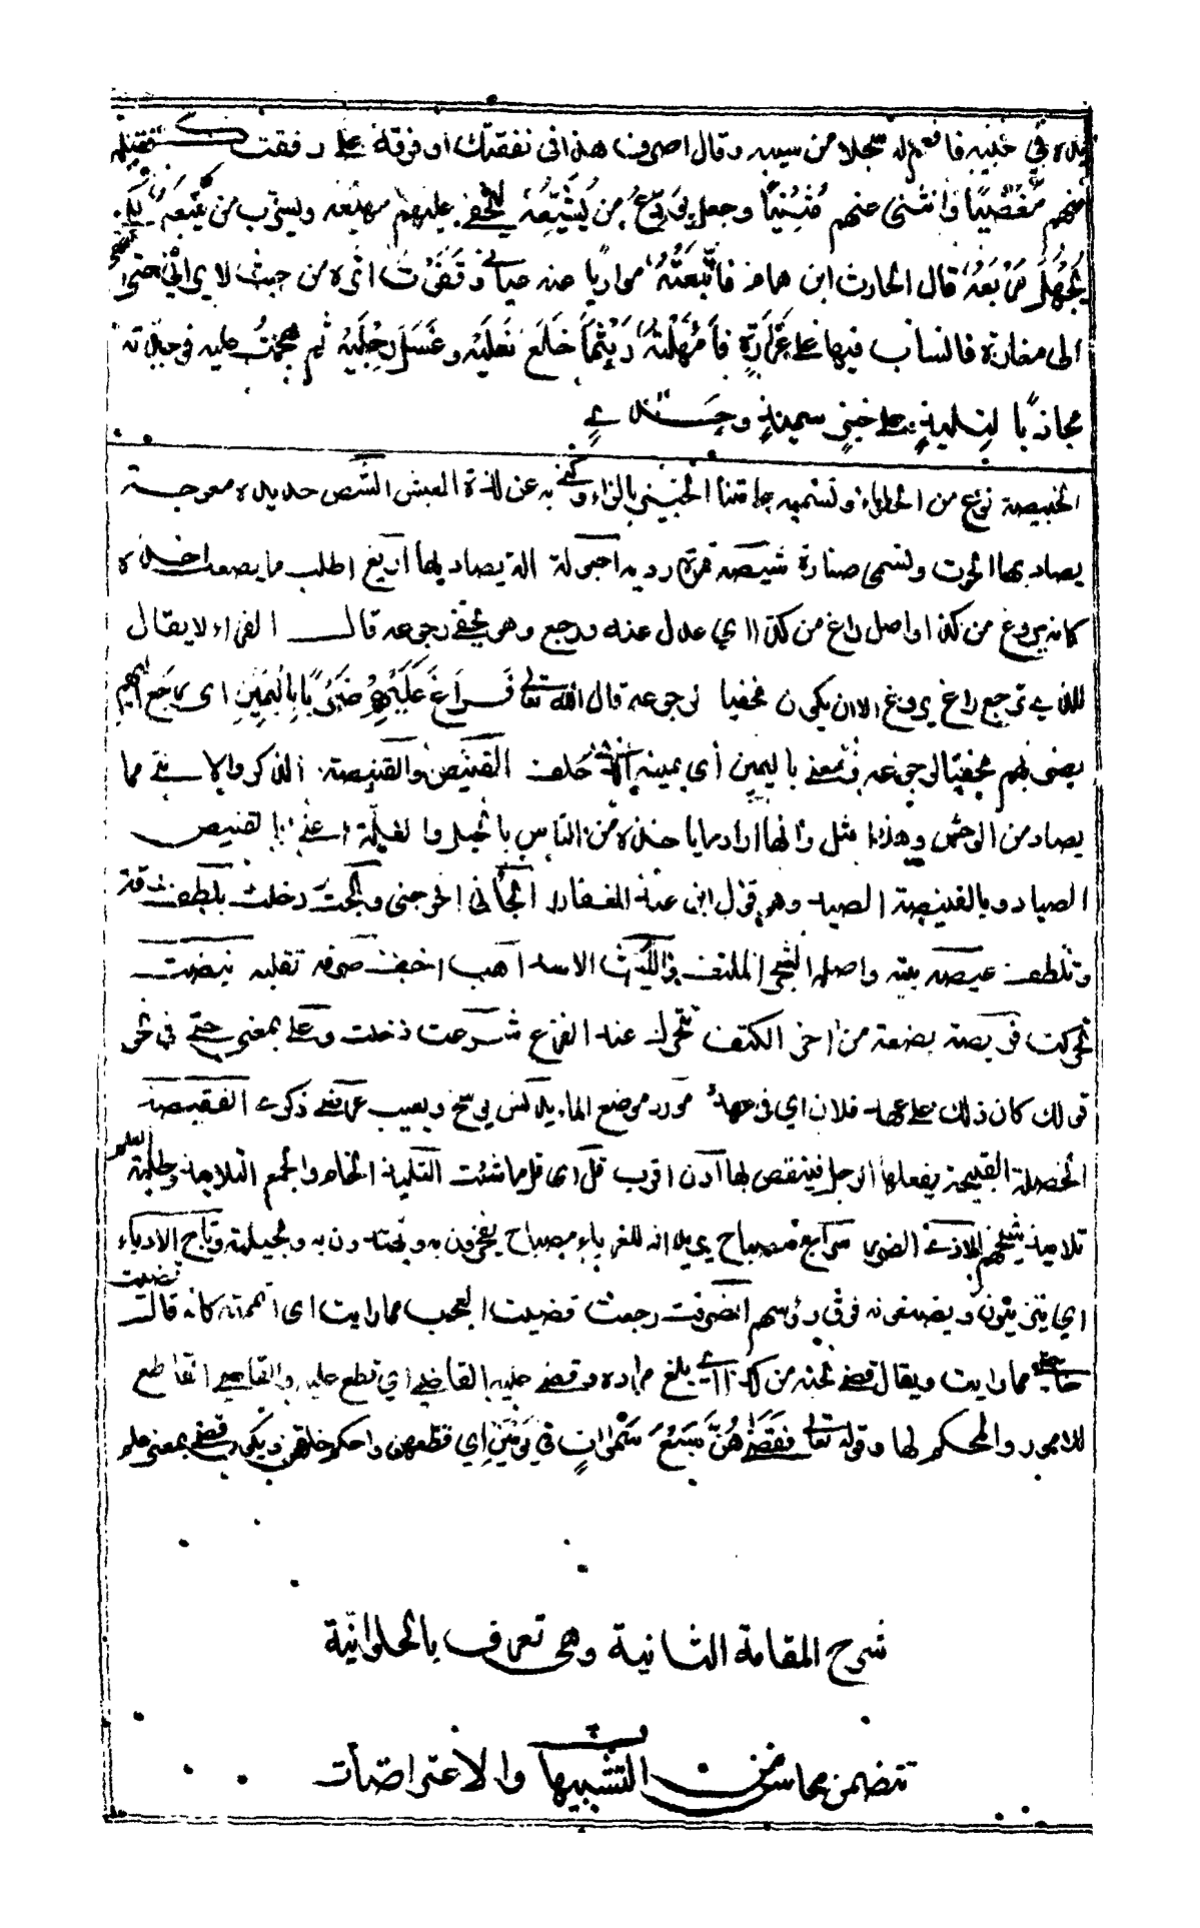 يده في جيبه فافعم له سجلا من سيبه وقال اصرف هذا في نفقتك او فرقه على رفقتك فقبله
منهم مغضيا وانثنى عنهم مثنيا وجعل يودع من يشيعه ليخفى عليهم مهيعه ويسرب من يتبعه لكي
يجهل مربعه قال الحارث ابن همام فاتبعته مواريا عنه عياني وقفوت اثره من حيث لا يراني حتى انتهى
الى مغارة فانساب فيها على غرارة فامهلته ريثما خلع نعليه وغسل رجليه ثم هجمت عليه فوجدته
مجاذبا لتلميذ على خبز سميذ وجدي
الخبيصة نوع من الحلواء وتسميه الخبيز بالزاء وكنى به عن لذة العيش الشص حديدة معوجة
يصاد بها الحوت وتسمى صنارة شيصة تمرة ردية احبولة الة يصاد بها اريغ اطلب ما يصعب اخذه
كانه يروغ من كذا واصل راغ من كذا اي عدل عنه ورجع وهو يخفي رجوعه قال الفراء لا يقال
للذي يرجع راغ يروغ الا ان يكون مخفيا لرجوعه قال الله تعالى فراغ عليهم ضربا باليمين اى رجع اليهم
يضربهم مخفيا لرجوعه ومعنى باليمين أي بيمينه حلف القنيص والقنيصة الذكر والانثى مما
يصاد من الوحش وهذا مثل وانما اراد ما ياخذه من الناس بالحيل والغيلة اعني بالقنيص
الصياد وبالقنيصة الصيد وهو قول ابن عبد الغفار الجأني اخرجني ولجت دخلت بلطف قد
وتلطف عيصه بيته واصله الشجر الملتف والليث الاسد اهب اخف صرفه تقلبه نبضت
تحركت فريصة بضعة من اخر الكتف تتحرك عند الفزع شرعت دخلت وعلى بمعنى حتى في نحو
قولك كان ذلك على عهد فلان اي في عهد مورد موضع الماء يدنس يوسخ ويعيب عما نعى ذكرت النقيصة
الخصلة القبيحة يفعلها الرجل فينقص بها ادن اقرب قل اى قل ما شئت التلميذ الخادم والجمع التلاميذ وطلبة العلم
تلاميذ شيخهم الاذى الضر سراج مصباح يريد انه للغرباء مصباح يفخرون به ويهتدون به وبحيلته وتاج الادباء
اي يتزينون ويضعونه فوق رؤسهم انصرفت رجعت قضيت العجب مما رايت اى اتممته كانه قال قضيت
حاجتي مما رايت ويقال قضى نحبه من كذا اي بلغ مراده وقضى عليه القاضي اي قطع عليه والقاضي القاطع
للامور والمحكم لها وقوله تعالى فقضاهن سبع سموات في يومين اي قطعهن واحكم خلقهن ويكون قضى بمعنى علم
شرح المقامة الثانية وهى تعرف بالحلوانية
تتضمن محاسن التشبيهات والاعتراضات